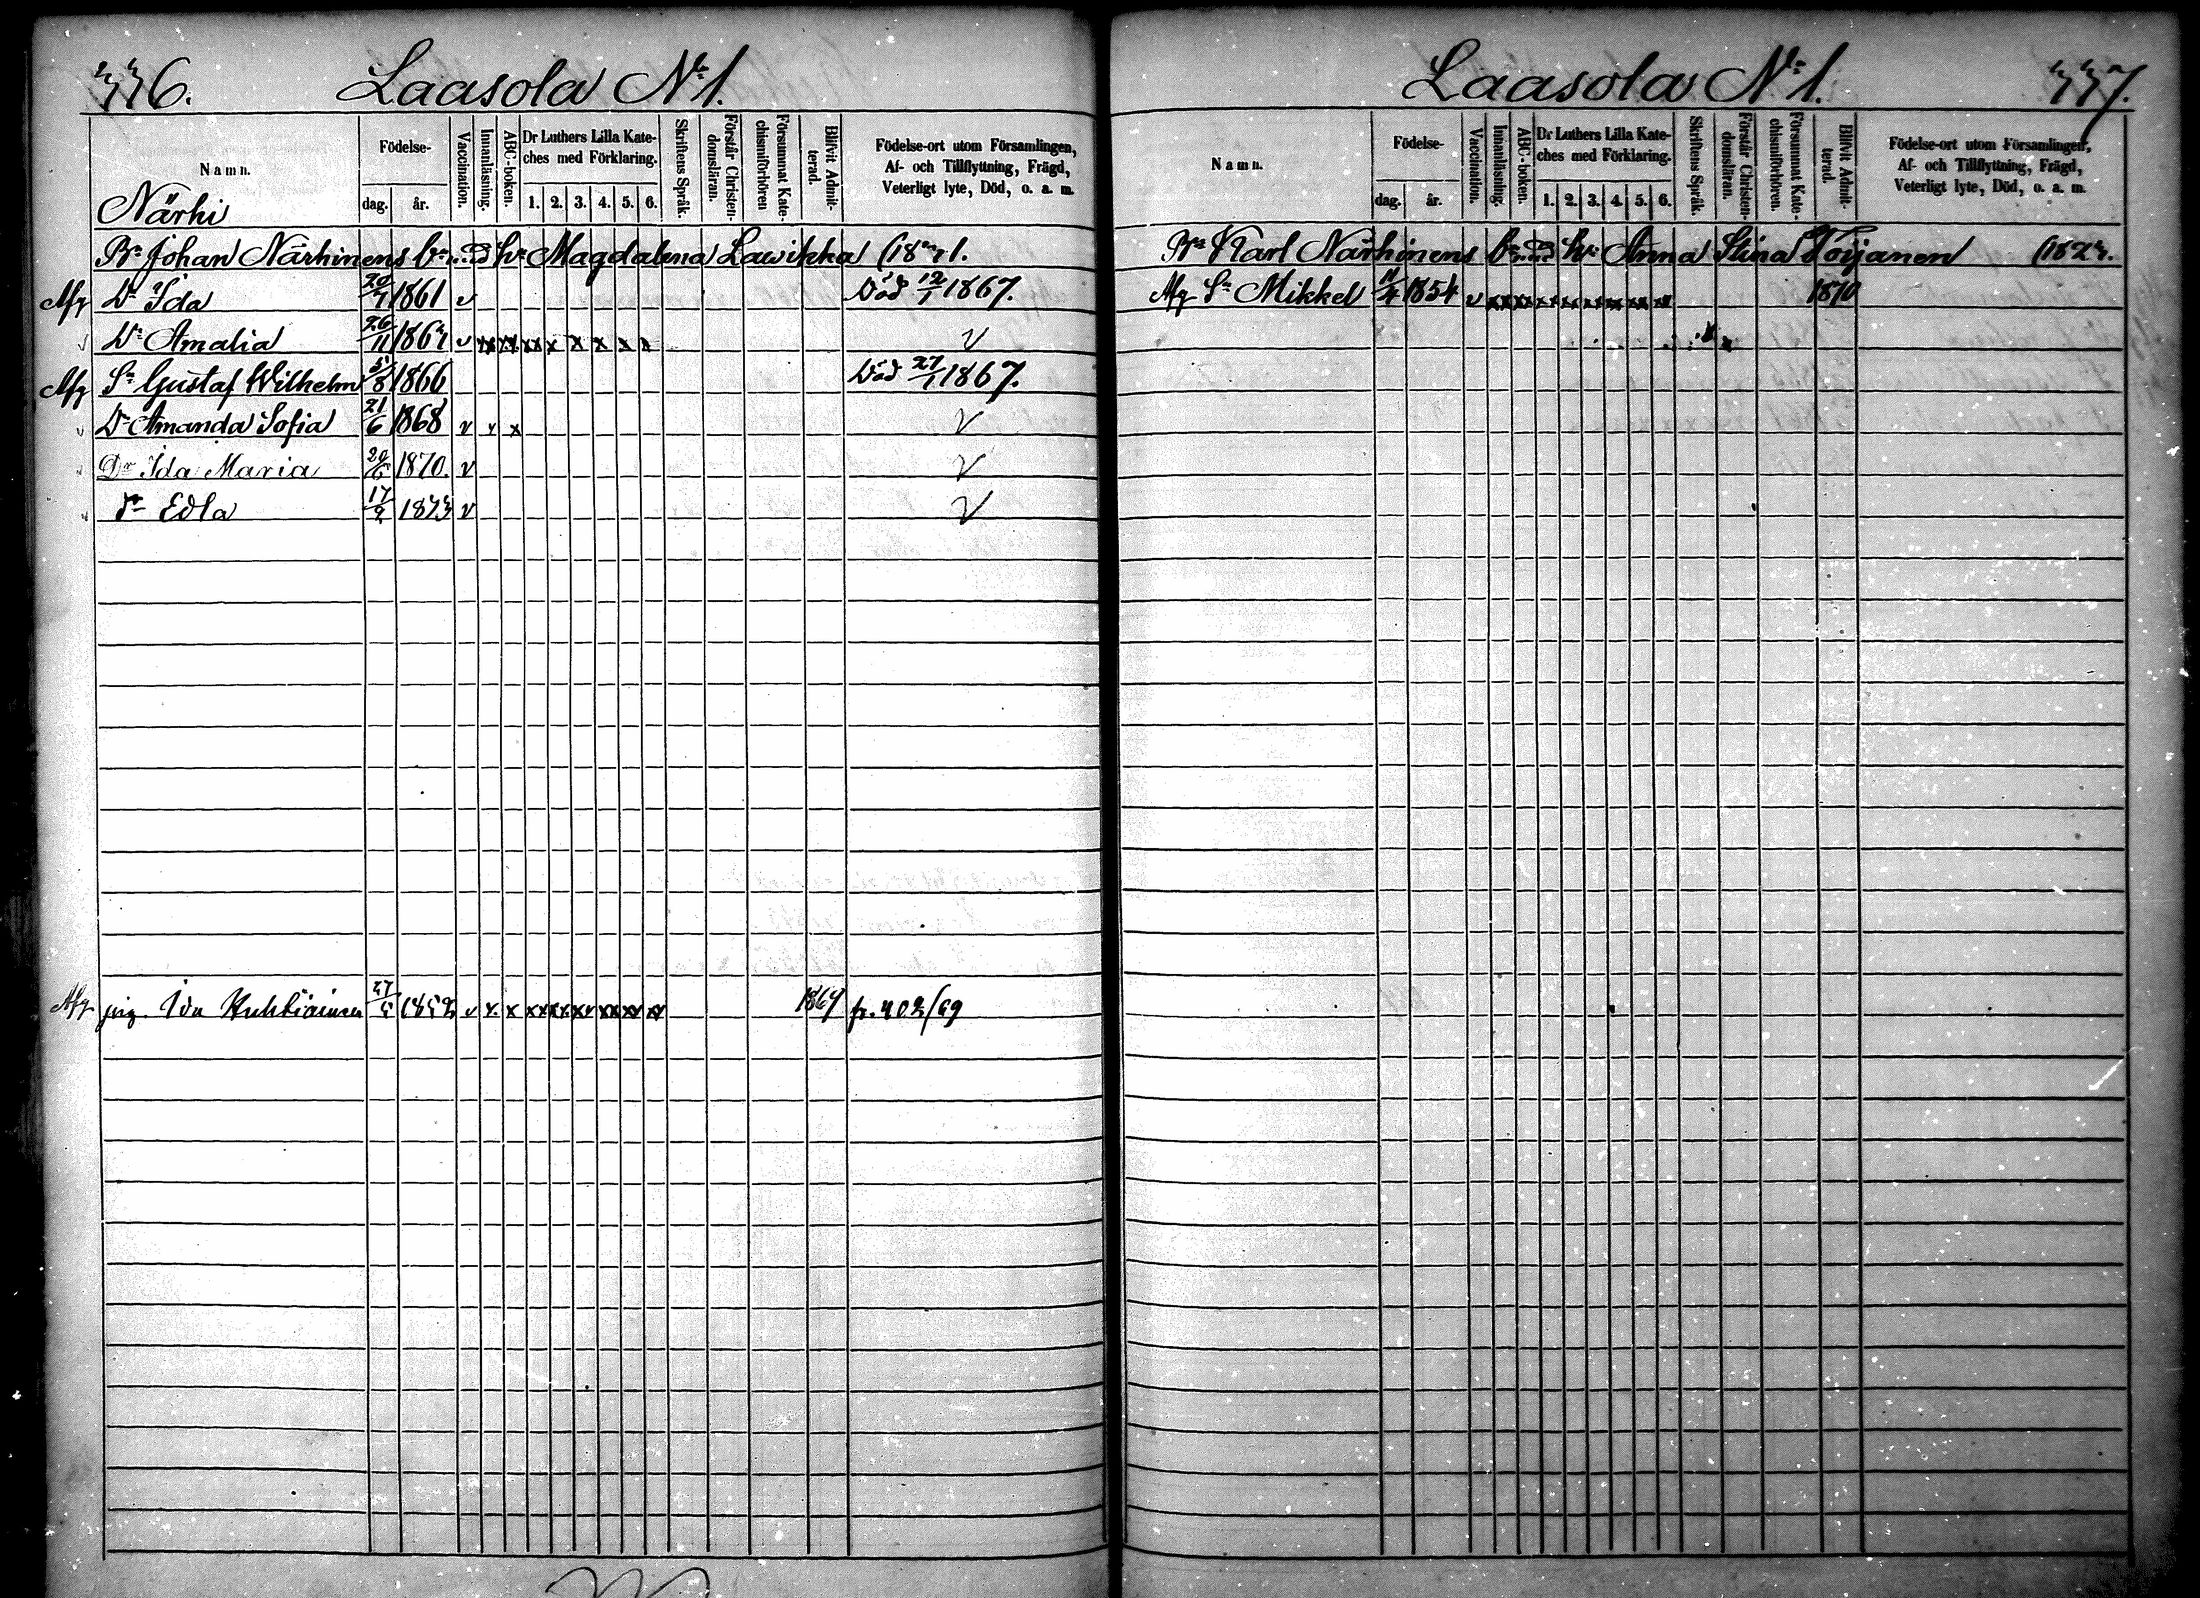 336. Laasola No 1.
Namn.
Födelse-
dag. år.
Vaccination.
Innanläsning.
ABC-boken.
Dr Luthers Lilla Kate-
ches med Förklaring.
1. 2. 3. 4. 5. 6.
Skriftens Språk.
Förstår Christen-
domsläran.
Försummat Kate-
chismiförhören
Blifvit Admit-
terad.
Födelse-ort utom Församlingen,
Af- och Tillflyttning, Frägd,
Veterligt lyte, Död, o. a. m.
Närhi
Bn Johan Närhinens Magdalena Lawikka
Afg Dr Ida 20/7 1861 v Död 12/1 1867.
v Dr Amalia 26/11 1863 v xx xx xx x x x x x v
Afg Sn Gustaf Wilhelm 5/8 1866 Död 27/1 1867.
v Dr Amanda Sofia 21/6 1868 v x x v
Dr Ida Maria 1870. v v
Edla 17/2 1873 v v
Afg pig. Ida 1852 v x x xx xx xx xx xx xx 1869 fr. 402/69
Laasola No 1. 337.
Namn.
Födelse-
dag. år.
Vaccination.
Innanläsning.
ABC-boken.
Dr Luthers Lilla Kate-
ches med Förklaring.
1. 2. 3. 4. 5. 6.
Skriftens Språk.
Förstår Christen-
domsläran.
Försummat Kate-
chismiförhören.
Blifvit Admit-
terad.
Födelse-ort utom Församlingen,
Af- och Tillflyttning, Frägd,
Veterligt lyte, Död, o. a. m.
Bn Karl Närhinens Anna Stina Töijanen (1823.
Afg Sn Mikkel 11/4 1854 v xx xx xx xx xx xx xx xx 1870